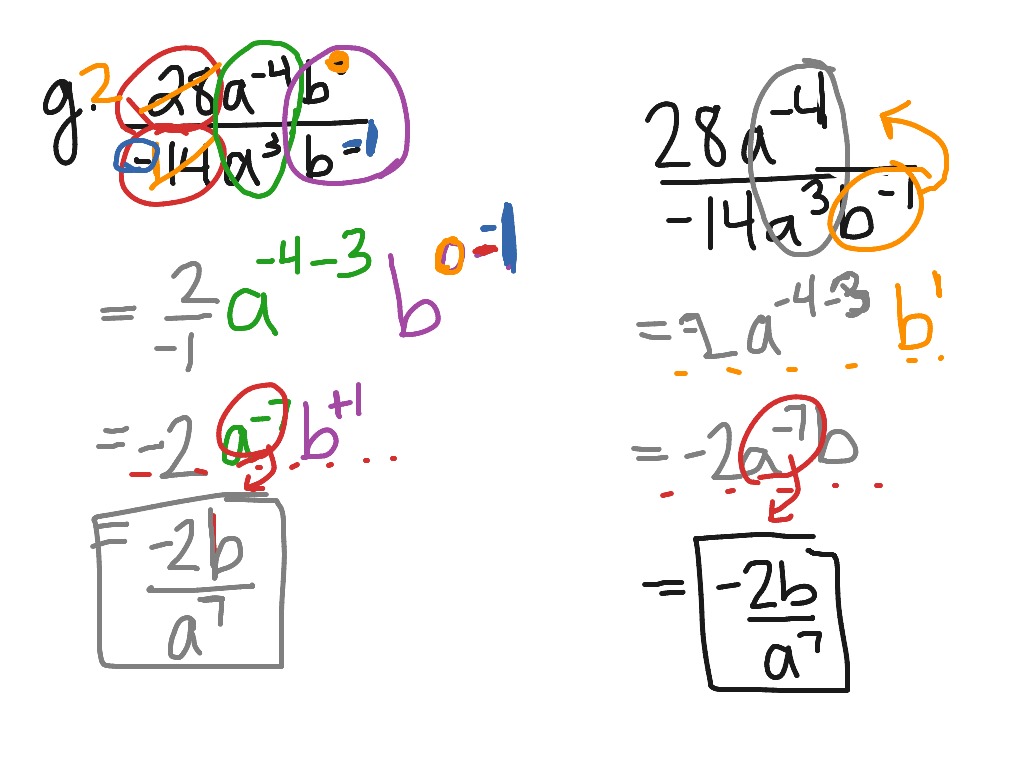 g. 2 28a⁻⁴b⁰ / -14a³b⁻¹
= 2/-1 a⁻⁴⁻³ b⁰⁻⁻¹
= -2 a⁻⁷ b⁺¹
= -2b / a⁷
28a⁻⁴ / -14a³b⁻¹
= -2a⁻⁴⁻³ b¹
= -2a⁻⁷b
= -2b / a⁷